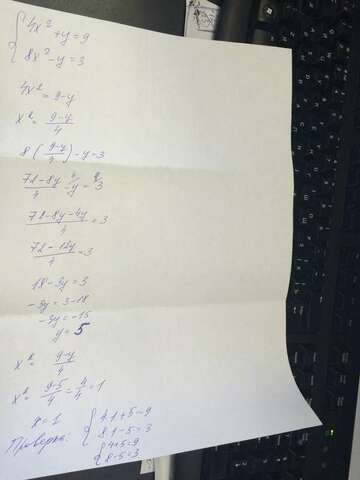 { 4x² + y = 9
8x² - y = 3
4x² = 9-y
x² = (9-y)/4
8((9-y)/4) - y = 3
(72-8y)/4 - y = 3
(72-8y-4y)/4 = 3
(72-12y)/4 = 3
18-3y = 3
-3y = 3-18
-3y = -15
y = 5
x² = (9-y)/4
x² = (9-5)/4 = 4/4 = 1
x = 1
Проверка: { 4·1+5=9
8·1-5=3
{ 4+5=9
8-5=3